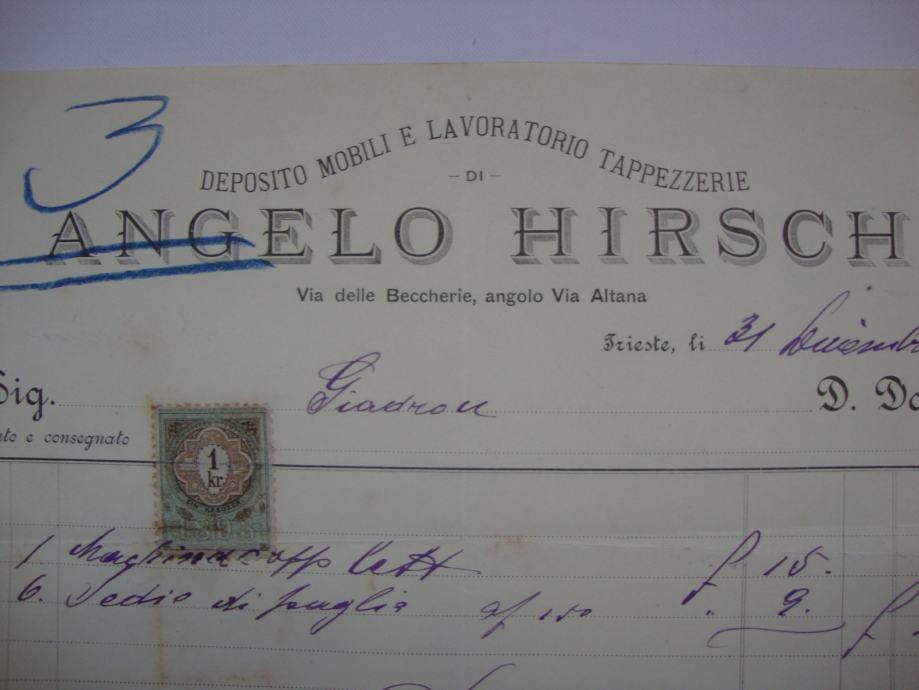 3
DEPOSITO MOBILI E LAVORATORIO TAPPEZZERIE
- DI -
ANGELO HIRSCH
Via delle Beccherie, angolo Via Altana
Trieste, li 31 Dicembr
Sig. Giadrou D. Do
ato e consegnato
1
kr.
EIN KREUZER
1. Macchina lett f 15.
6. Sedie di paglia af 1.50 " 9. f